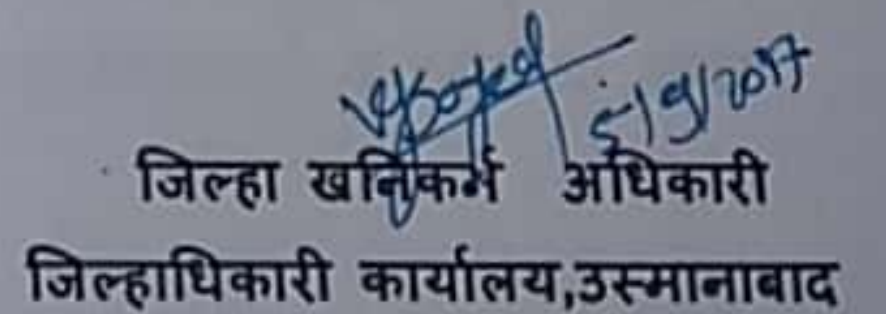 5/9/2017
जिल्हा खनिकर्म अधिकारी
जिल्हाधिकारी कार्यालय,उस्मानाबाद